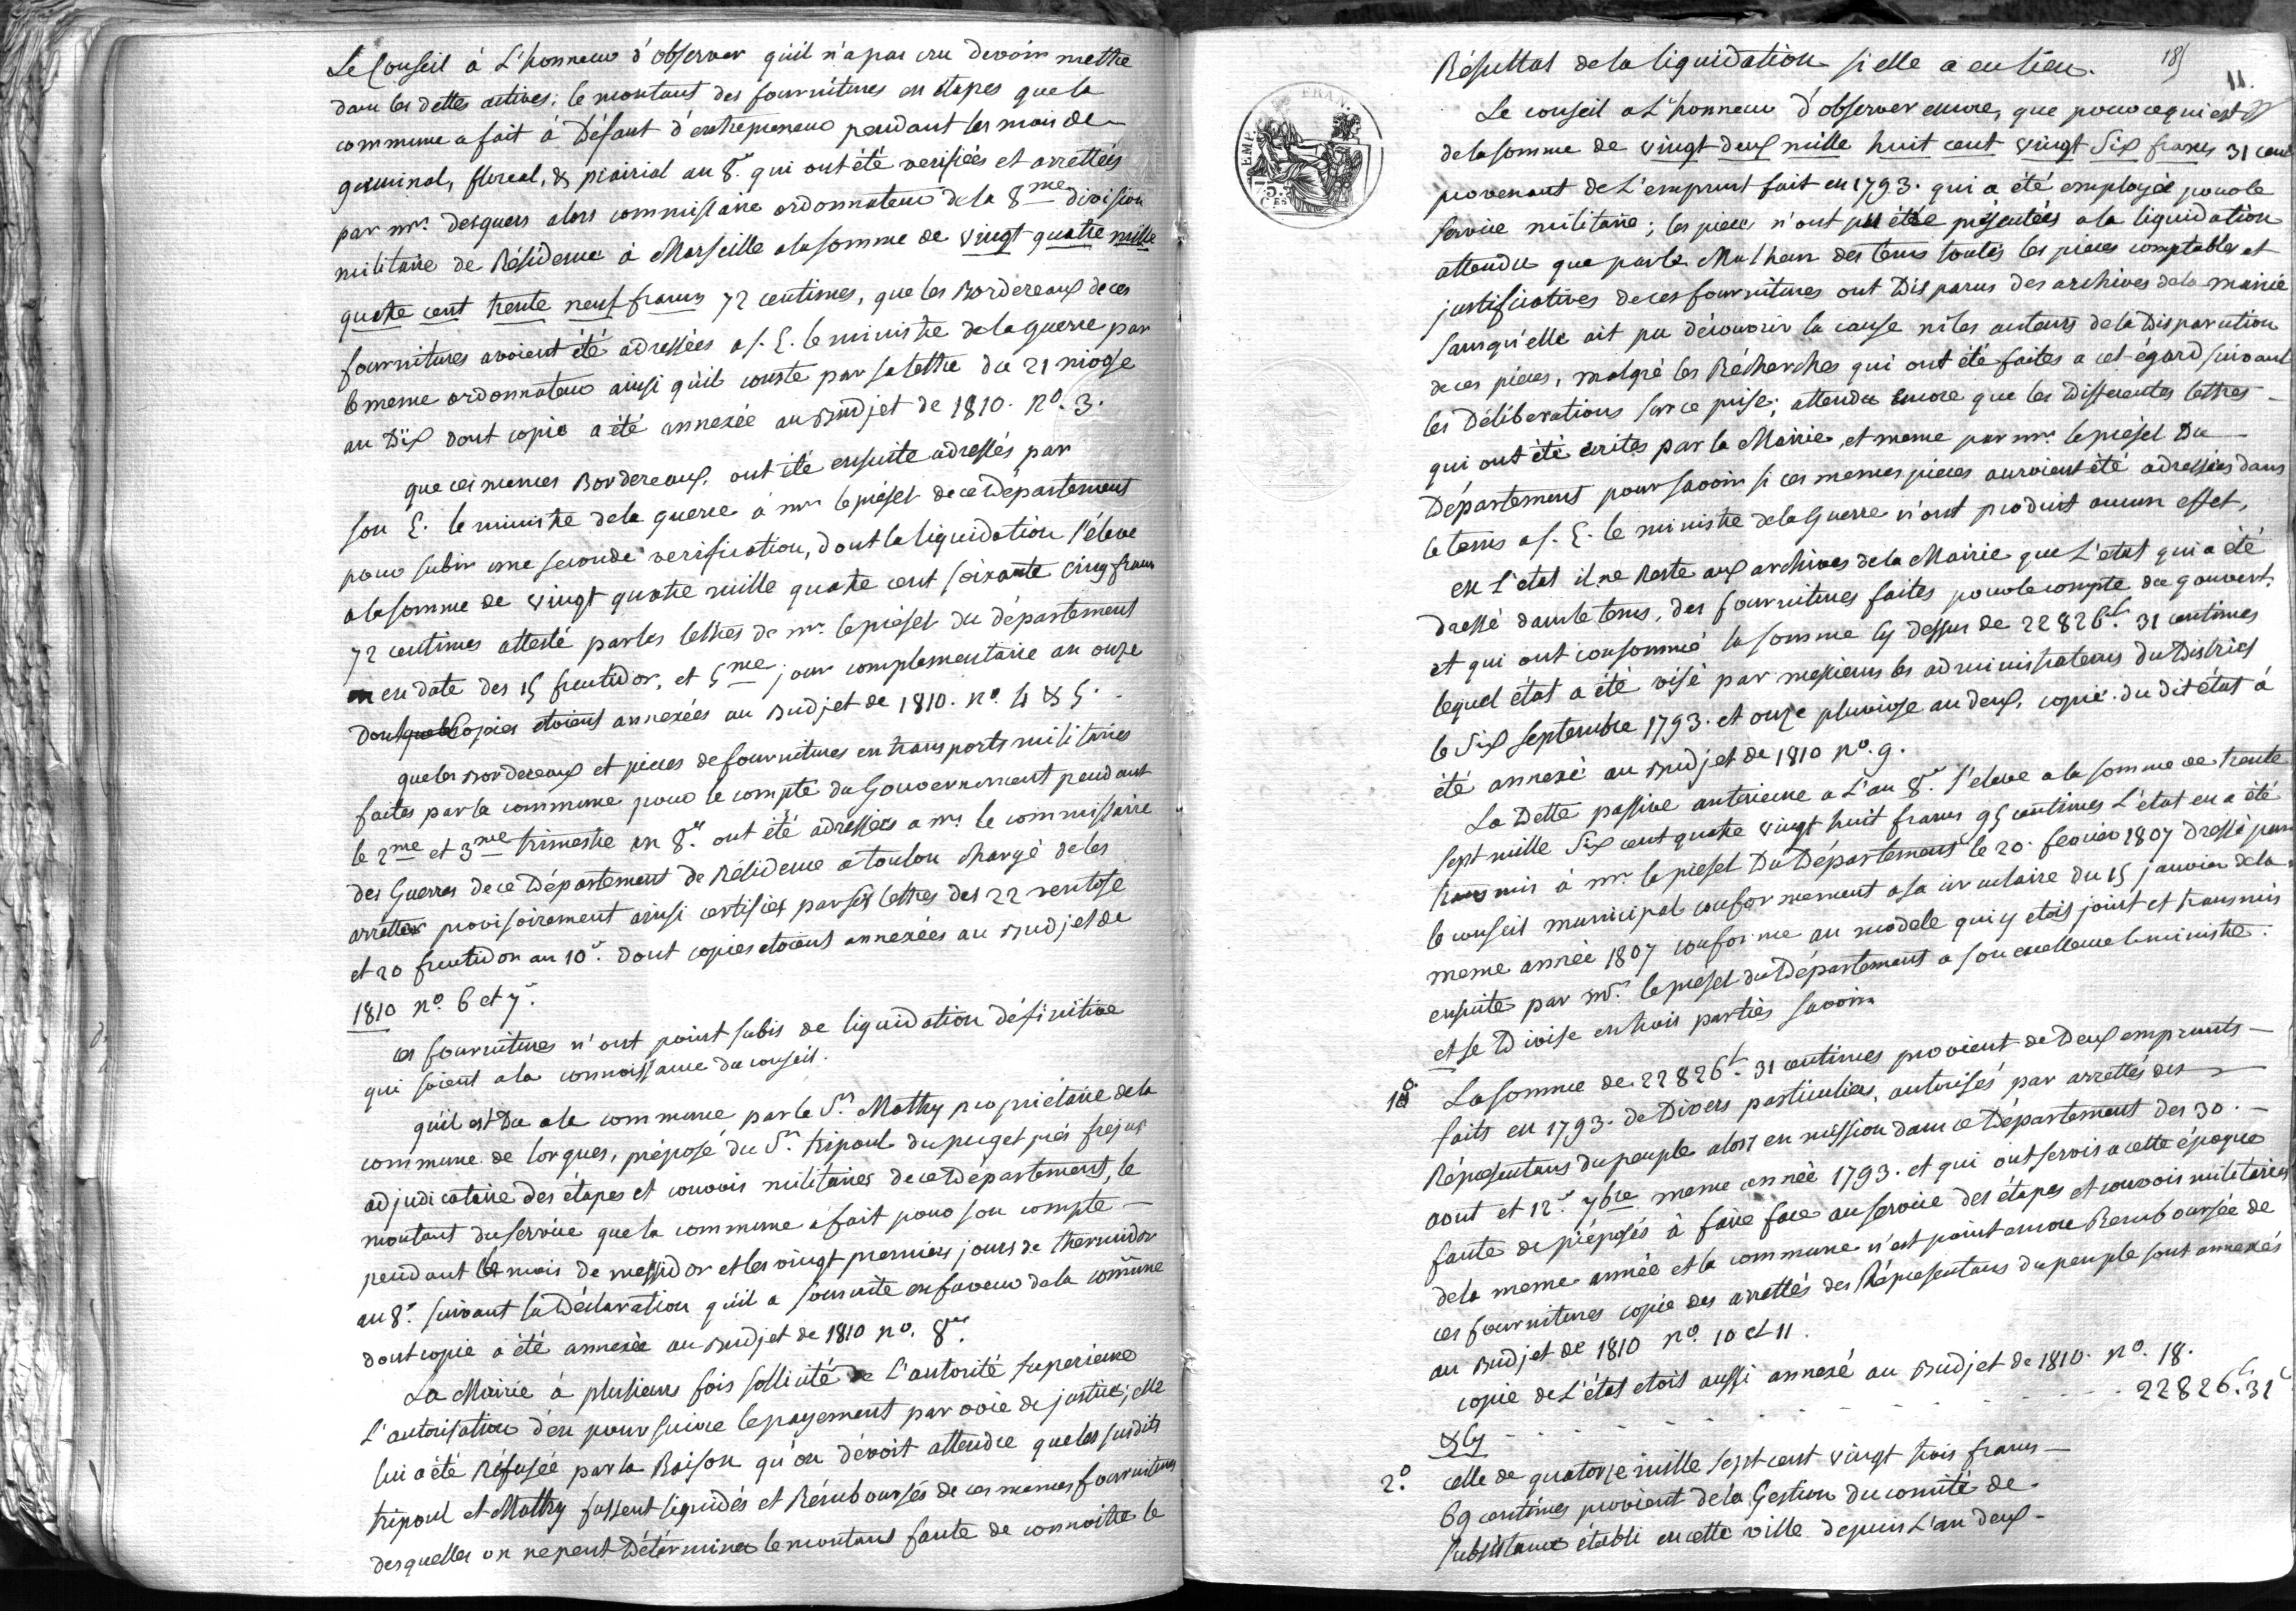 Le Conseil à L'honneur d'observer qu'il n'a pas cru devoir mettre
dans les dettes actives; le montant des fournitures en étapes que la
commune a fait à Défaut d'entrepreneur pendant les mois de
germinal, floreal, & prairial an 8.e qui ont été verifiées et arrettées
par mr. desquers alors commissaire ordonnateur de la 8me division
militaire de Résidence à Marseille a la somme de vingt quatre mille
quatre cent trente neuf francs 72 centimes, que les Bordereaux de ces
fournitures avoient été adressées a s. E. le ministre de la guerre par
le meme ordonnateur ainsi qu'il conste par sa lettre du 21 nivose
an Dix dont copie a été annexée au Budjet de 1810. no. 3.
que ces memes Bordereaux, ont été ensuite adressés par
son E. le ministre de la guerre à mr. le préfet de ce Département
pour subir une seconde verification, dont la liquidation s'éleve
a la somme de vingt quatre mille quatre cent soixante cinq francs
72 centimes attesté par les lettres de mr. le préfet du département
en date des 15 fructidor, et 5me jour complementaire an onze
Dont Copies etoient annexées au Budjet de 1810. no. 4 & 5.
que les Bordereaux et pieces de fournitures en transports militaires
faites par la commune pour le compte du Gouvernement pendant
le 2me et 3me trimestre an 8.e ont été adressées a mr. le commissaire
des Guerres de ce Département de Résidence a toulon chargé de les
arretter provisoirement ainsi certifiés par ses lettres des 22 ventose
et 20 fructidor an 10.e dont copies etoient annexées au Budjet de
1810 no. 6 et 7.
ces fournitures n'ont point subis de liquidation définitive
qui soient a la connoissance du conseil.
qu'il est Du a la commune par le Sr. Mathy propriétaire de la
commune de lorgues, préposé du Sr. tripoul du puget prés frejus
adjudicataire des étapes et convois militaires de ce Département, le
montant du service que la commune a fait pour son compte
pendant le mois de messidor et les vingt premiers jours de thermidor
an 8.e suivant la Déclaration qu'il a souscrite en faveur de la commune
dont copie a été annexée au Budjet de 1810 no. 8.
La Mairie à plusieurs fois sollicité de L'autorité superieure
L'autorisation d'en poursuivre le payement par voie de justice; elle
lui a été Réfusée par la Raison qu'on dévoit attendre que les susdits
tripoul et Mathy fussent liquidés et Rémboursés de ces memes fournitures
desquelles on ne peut Détérminer le montant faute de connoitre le
185
11.
Résultat de la liquidation si elle a eu lieu.
Le conseil a L'honneur d'observer encore, que pour ce qui est
de la somme de vingt deux mille huit cent vingt Six francs 31 cent
provenant de L'emprunt fait en 1793. qui a été employée pour le
service militaire; les pieces n'ont pu être présentées a la liquidation
attendu que par le Malheur des tems toutes les pieces comptables et
justificatives de ces fournitures ont Disparus des archives de la mairie
sans qu'elle ait pu découvrir la cause ni les auteurs de la Disparution
de ces pieces, malgré les Récherches qui ont été faites a cet égard suivant
les Déliberations sur ce prise; attendu encore que les Differentes lettres
qui ont été écrites par la Mairie, et meme par mr. le préfet Du
Département pour savoir si ces memes pieces auroient été adressées dans
le tems a s. E. le ministre de la Guerre n'ont produit aucun effet,
en L'etat il ne Reste aux archives de la Mairie que L'etat qui a été
dressé dans le tems, des fournitures faites pour le compte du gouvert.
et qui ont consommé la somme cy dessus de 22826f. 31 centimes
lequel état a été visé par messieurs les administrateurs du District
le Six Septembre 1793. et onze pluviose an deux, copie du dit état à
été annexé au Budjet de 1810 no. 9.
La Dette passive anterieure a L'an 8.e s'eleve a la somme de trente
sept mille Six cent quatre vingt huit francs 95 centimes L'état en a été
transmis à mr. le préfet Du Département le 20. fevrier 1807 dressé par
le conseil municipal conformement a sa circulaire du 15 janvier de la
meme année 1807 conforme au modele qui y etoit joint et transmis
ensuite par mr. le préfet du Département a son excellence le ministre.
et se Divise en trois parties savoir
1o. La somme de 22826f. 31 centimes provient de Deux emprunts
faits en 1793. de Divers particuliers, autorisés par arrettés des
Répresentans du peuple alors en mission dans ce Département des 30.
aout et 12.e 7bre meme année 1793. et qui ont servis a cette époque
faute de préposés à faire face au service des étapes et convois militaires
de la meme année et la commune n'est point encore Remboursée de
ces fournitures copie des arrettés des Répresentans du peuple sont annexés
au Budjet de 1810 no. 10 et 11.
copie de L'état etoit aussi annexé au Budjet de 1810. no. 18.
& Cy - - - - - - - - - 22826f. 31c
2o. celle de quatorze mille sept cent vingt trois francs
69 centimes provient de la Gestion du comité de
subsistance établi en cette ville depuis L'an deux